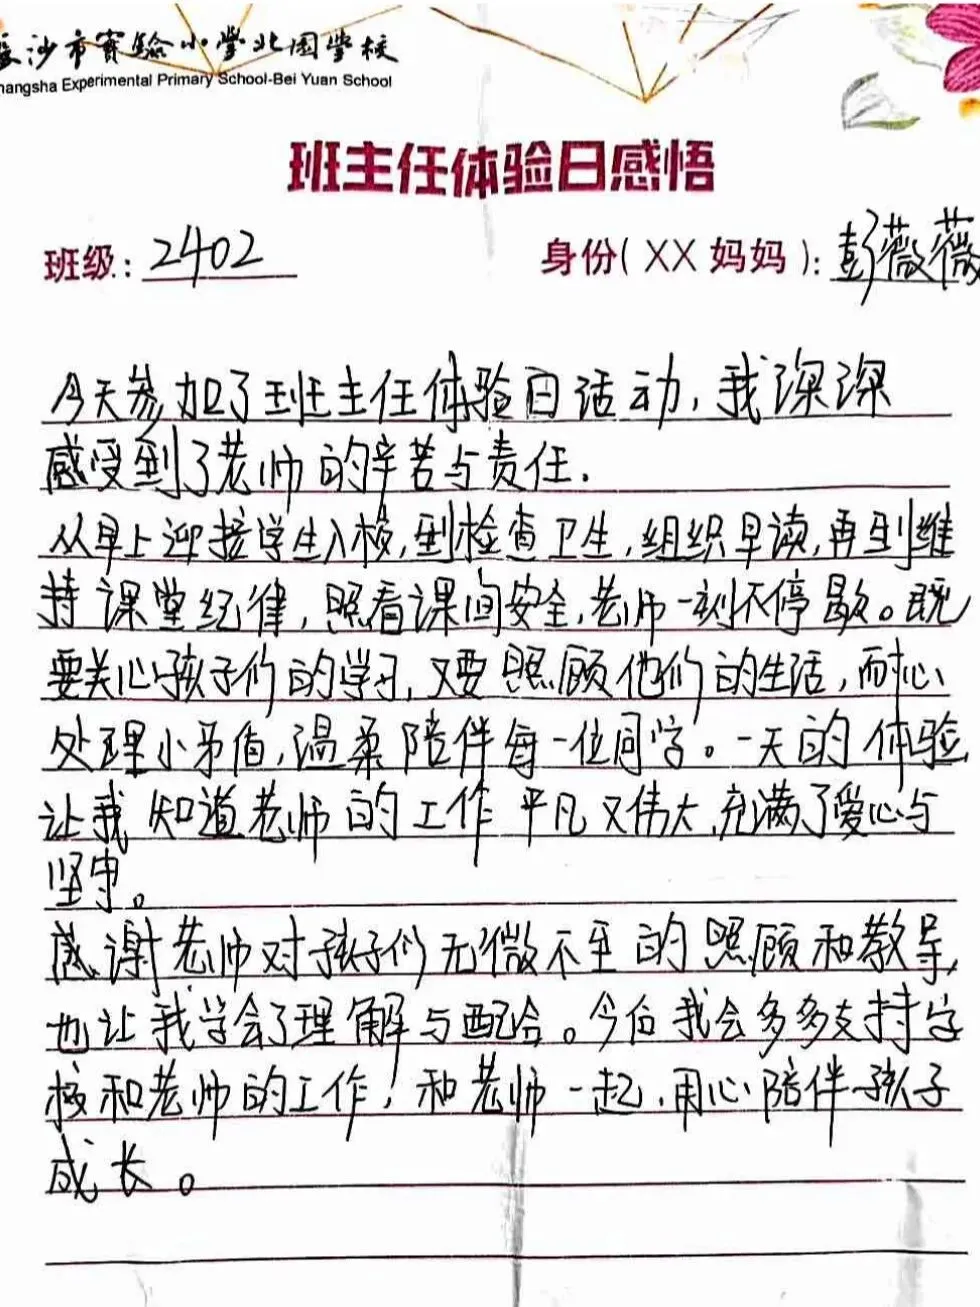 长沙市实验小学北园学校
hangsha Experimental Primary School-Bei Yuan School
班主任体验日感悟
班级：2402 身份（XX妈妈）：彭薇薇
今天参加了班主任体验日活动，我深深
感受到了老师的辛苦与责任.
从早上迎接学生入校，到检查卫生，组织早读，再到维
持课堂纪律，照看课间安全，老师一刻不停歇。既
要关心孩子们的学习，又要照顾他们的生活，耐心
处理小矛盾，温柔陪伴每一位同学。一天的体验，
让我知道老师的工作平凡又伟大，充满了爱心与
坚守。
感谢老师对孩子们无微不至的照顾和教导，
也让我学会了理解与配合。今后我会多多支持学
校和老师的工作，和老师一起，用心陪伴孩子
成长。